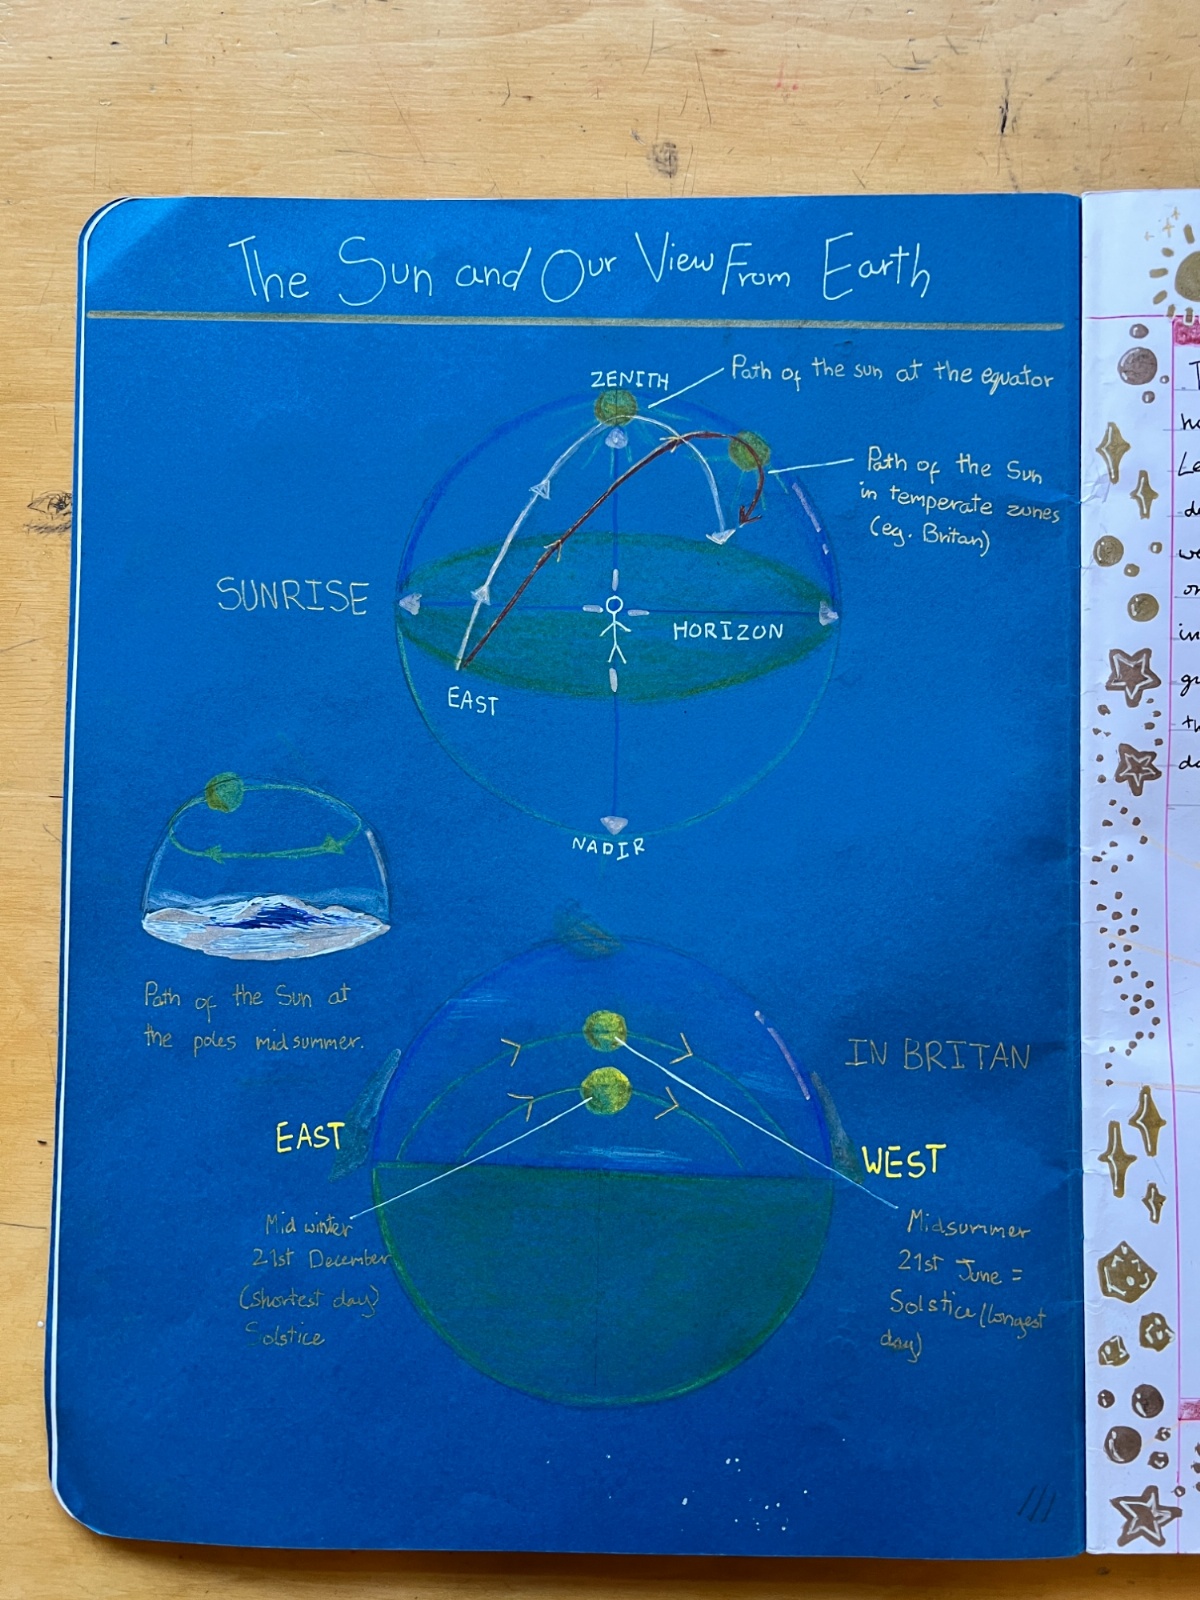 The Sun and Our View From Earth
ZENITH
Path of the sun at the equator
Path of the Sun
in temperate zones
(eg. Britan)
SUNRISE
HORIZON
EAST
NADIR
Path of the Sun at
the poles midsummer.
IN BRITAN
EAST
WEST
Mid winter
21st December
(shortest day)
Solstice
Midsummer
21st June =
Solstice (longest
day)